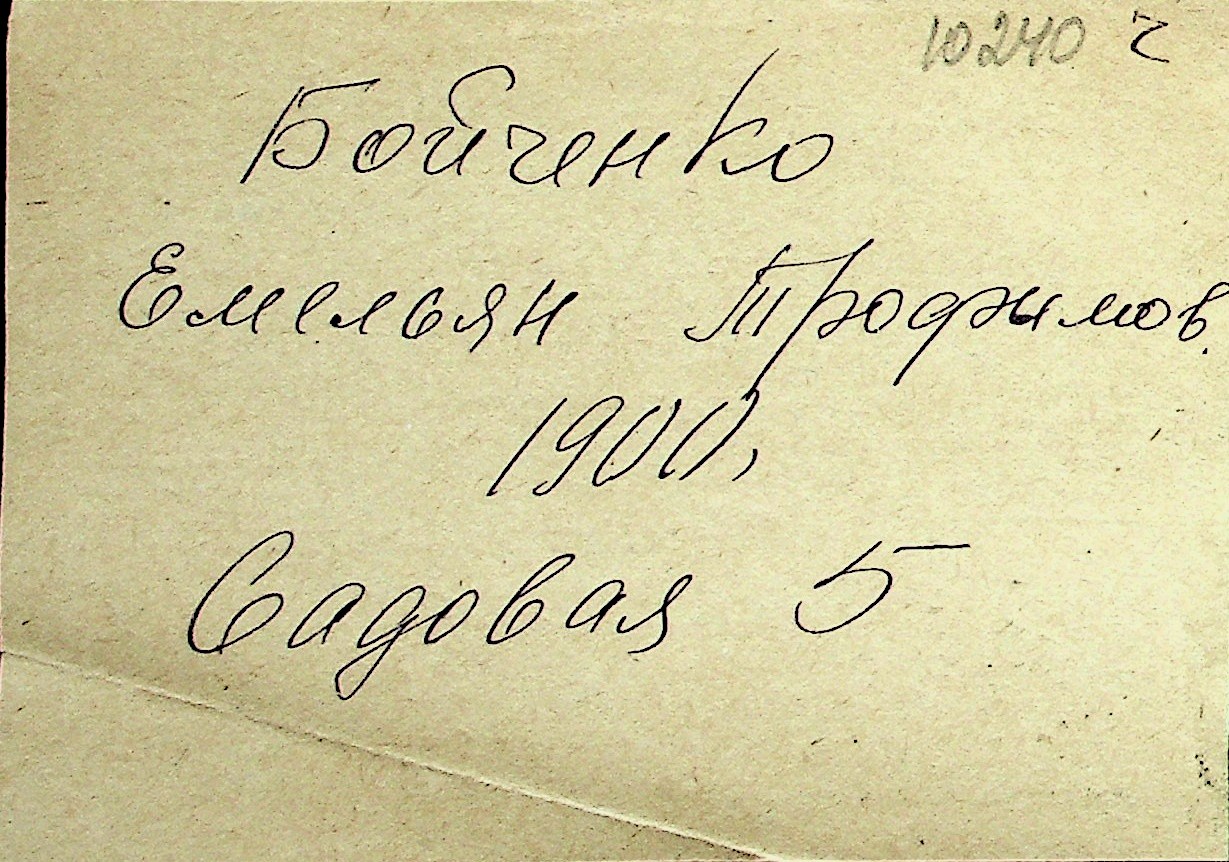 10240 ч
Бойченко
Емельян Трофымов.
1900,
Садовая 5